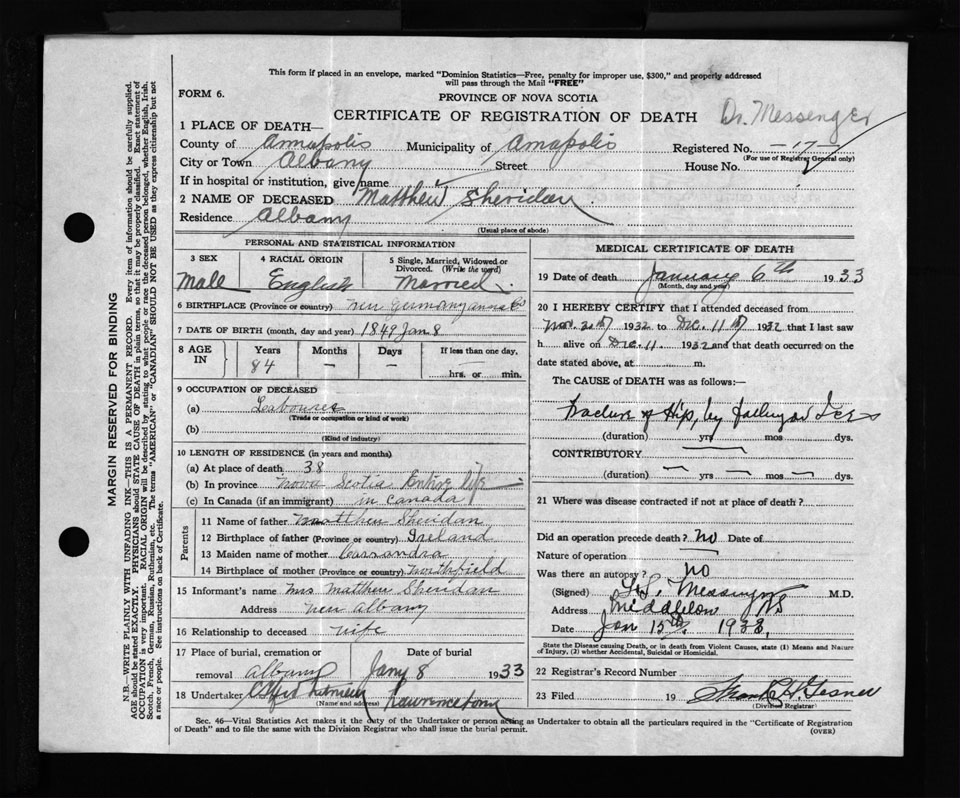 This form if placed in an envelope, marked "Dominion Statistics—Free, penalty for improper use, $300," and properly addressed
will pass through the Mail "FREE"
FORM 6.
PROVINCE OF NOVA SCOTIA
CERTIFICATE OF REGISTRATION OF DEATH
Dr. Messenger
1 PLACE OF DEATH—
County of Annapolis Municipality of Annapolis Registered No. —17—
(For use of Registrar General only)
City or Town Albany Street House No.
If in hospital or institution, give name
2 NAME OF DECEASED Matthew Sheridan
Residence Albany
(Usual place of abode)
PERSONAL AND STATISTICAL INFORMATION
3 SEX 4 RACIAL ORIGIN 5 Single, Married, Widowed or
Divorced. (Write the word)
Male English Married
6 BIRTHPLACE (Province or country) New Germany Anna Co
7 DATE OF BIRTH (month, day and year) 1849 Jan 8
8 AGE IN Years Months Days If less than one day,
84 — — hrs. or min.
9 OCCUPATION OF DECEASED
(a) Labourer
(Trade or occupation or kind of work)
(b)
(Kind of industry)
10 LENGTH OF RESIDENCE (in years and months)
(a) At place of death 38
(b) In province Nova Scotia Entire life
(c) In Canada (if an immigrant) in Canada
Parents
11 Name of father Matthew Sheridan
12 Birthplace of father (Province or country) Ireland
13 Maiden name of mother Cassandra
14 Birthplace of mother (Province or country) Northfield
15 Informant's name Mrs Matthew Sheridan
Address New Albany
16 Relationship to deceased wife
17 Place of burial, cremation or Date of burial
removal Albany Jany 8 1933
18 Undertaker Lawrencetown
(Name and address)
MEDICAL CERTIFICATE OF DEATH
19 Date of death January 6th 1933
(Month, day and year)
20 I HEREBY CERTIFY that I attended deceased from
Nov. 1932 to Dec. 11th 1932 that I last saw
h alive on Dec. 11. 1932 and that death occurred on the
date stated above, at m.
The CAUSE of DEATH was as follows:—
Fracture of Hip, by falling on Ice
(duration) yrs mos dys.
CONTRIBUTORY
(duration) — yrs — mos — dys.
21 Where was disease contracted if not at place of death?
Did an operation precede death? no Date of
Nature of operation
Was there an autopsy? no
(Signed) Messenger M.D.
Address Middleton NS
Date Jan 15th, 1933,
State the Disease causing Death, or in death from Violent Causes, state (1) Means and Nature
of Injury, (2) whether Accidental, Suicidal or Homicidal.
22 Registrar's Record Number
23 Filed 19 Frank H. Gesner
(Division Registrar)
Sec. 46—Vital Statistics Act makes it the duty of the Undertaker or person acting as Undertaker to obtain all the particulars required in the "Certificate of Registration
of Death" and to file the same with the Division Registrar who shall issue the burial permit.
(OVER)
MARGIN RESERVED FOR BINDING
N.B.—WRITE PLAINLY WITH UNFADING INK—THIS IS A PERMANENT RECORD. Every item of information should be carefully supplied.
AGE should be stated EXACTLY. PHYSICIANS should STATE CAUSE OF DEATH in plain terms, so that it may be properly classified. Exact statement of
OCCUPATION is very important. RACIAL ORIGIN will be described by stating to what people or race the deceased person belonged, whether English, Irish,
Scotch, French, German, Russian, Ruthenian, etc. The terms "AMERICAN" or "CANADIAN" SHOULD NOT BE USED as they express citizenship but not
a race or people. See instructions on back of Certificate.